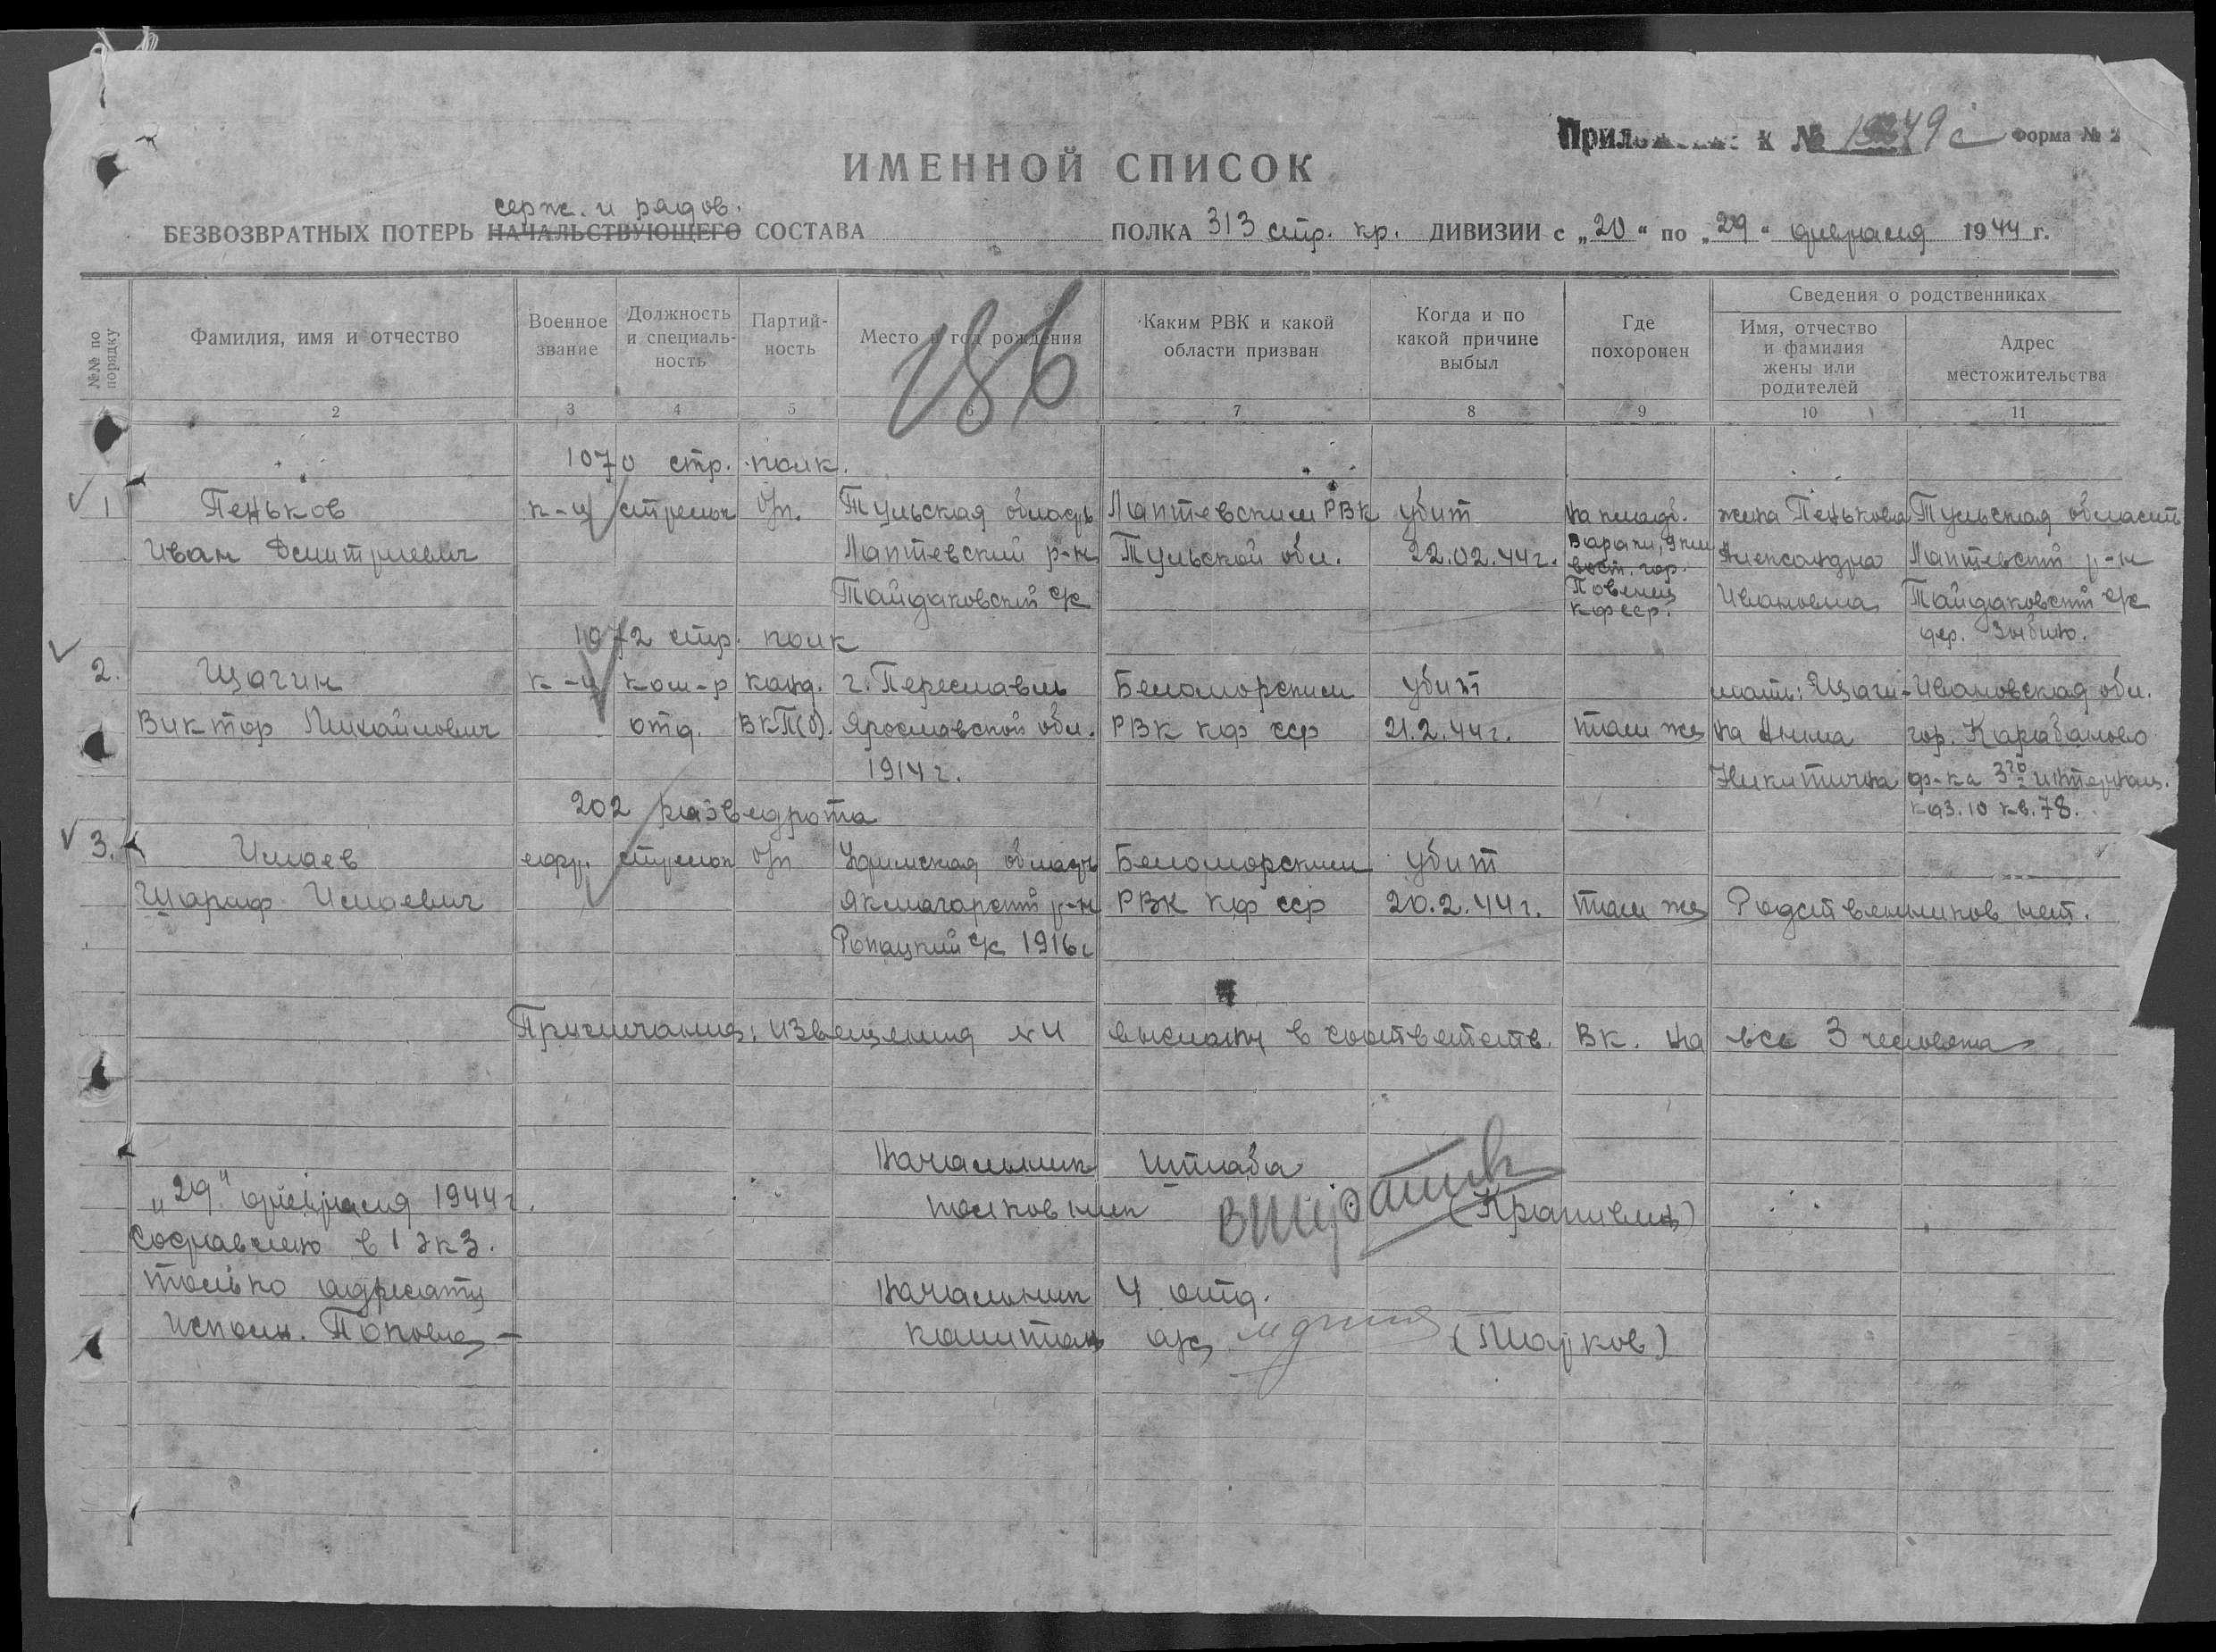 Приложение к № 79 с Форма № 2
ИМЕННОЙ СПИСОК
серж. и рядов.
БЕЗВОЗВРАТНЫХ ПОТЕРЬ НАЧАЛЬСТВУЮЩЕГО СОСТАВА ПОЛКА 313 стр. кр. ДИВИЗИИ с „20“ по „29“ февраля 1944 г.
№№ по порядку
Фамилия, имя и отчество
Военное звание
Должность и специальность
Партийность
Место и год рождения
Каким РВК и какой области призван
Когда и по какой причине выбыл
Где похоронен
Сведения о родственниках
Имя, отчество и фамилия жены или родителей
Адрес местожительства
2 3 4 5 6 7 8 9 10 11
186
1070 стр. полк.
1 Пеньков к-ц стрелок б/п. Тульская область Лаптевским РВК убит на кладб. жена Пенькова Тульская область
Иван Дмитриевич Лаптевский р-н Тульской обл. 22.02.44г. Варали, 9 км Александра Лаптевский р-н
вост. гор.
Тайдаковский с/с Повенец Ивановна Тайдаковский с/с
кфсср.
1072 стр. полк дер. Зыбино.
2. Щагин к-ц ком-р канд. г. Переславль Беломорским убит мать: Щаги- Ивановская обл.
Виктор Михайлович отд. ВКП(б). Ярославской обл. РВК кф сср 21.2.44г. там же на Анна гор. Карабаново
1914г. Никитична ф-ка 3го интернац.
202 разведрота каз. 10 кв. 78.
3. Ишаев ефр. стрелок б/п область Беломорским убит
Шараф Ишаевич р-н РВК кф сср 20.2.44г. там же Родственников нет.
с/с 1916г
Примечания: извещения №4 высланы в соответств. ВК. на все 3 человека
Начальник штаба
„29" февраля 1944г. полковник (Крапивин)
Составлено в 1 экз.
только адресату Начальник 4 отд.
Исполн. Попова, капитан а/с